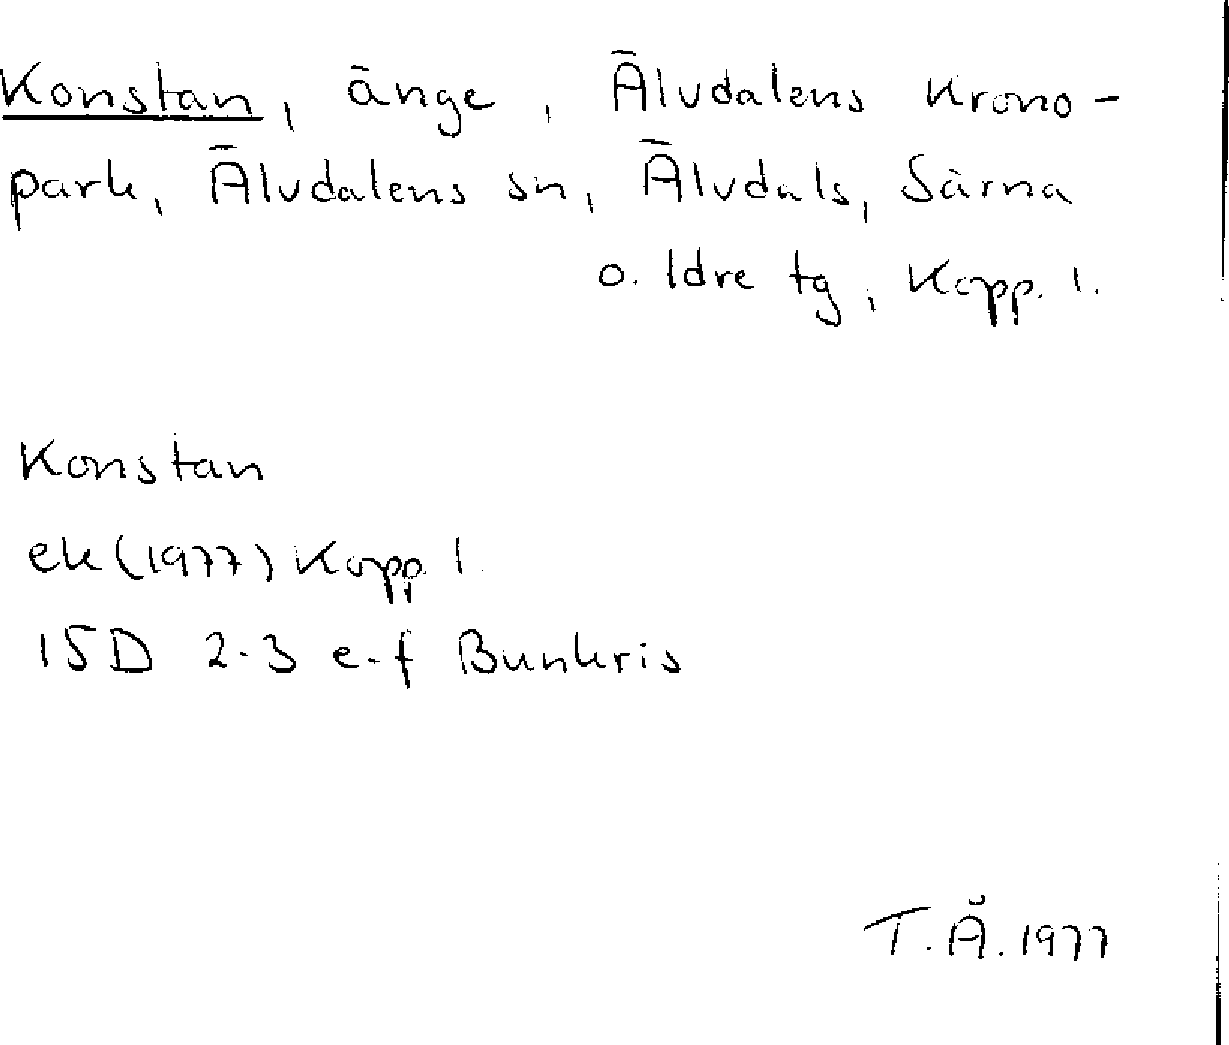 Konstan, änge, Älvdalens Krono-
park, Älvdalens sn, Älvdals, Särna
o. Idre tg, Kopp. l.
Konstan
ek (1977) Kopp l.
15D 2-3 e-f Bunkris
T.Å. 1977